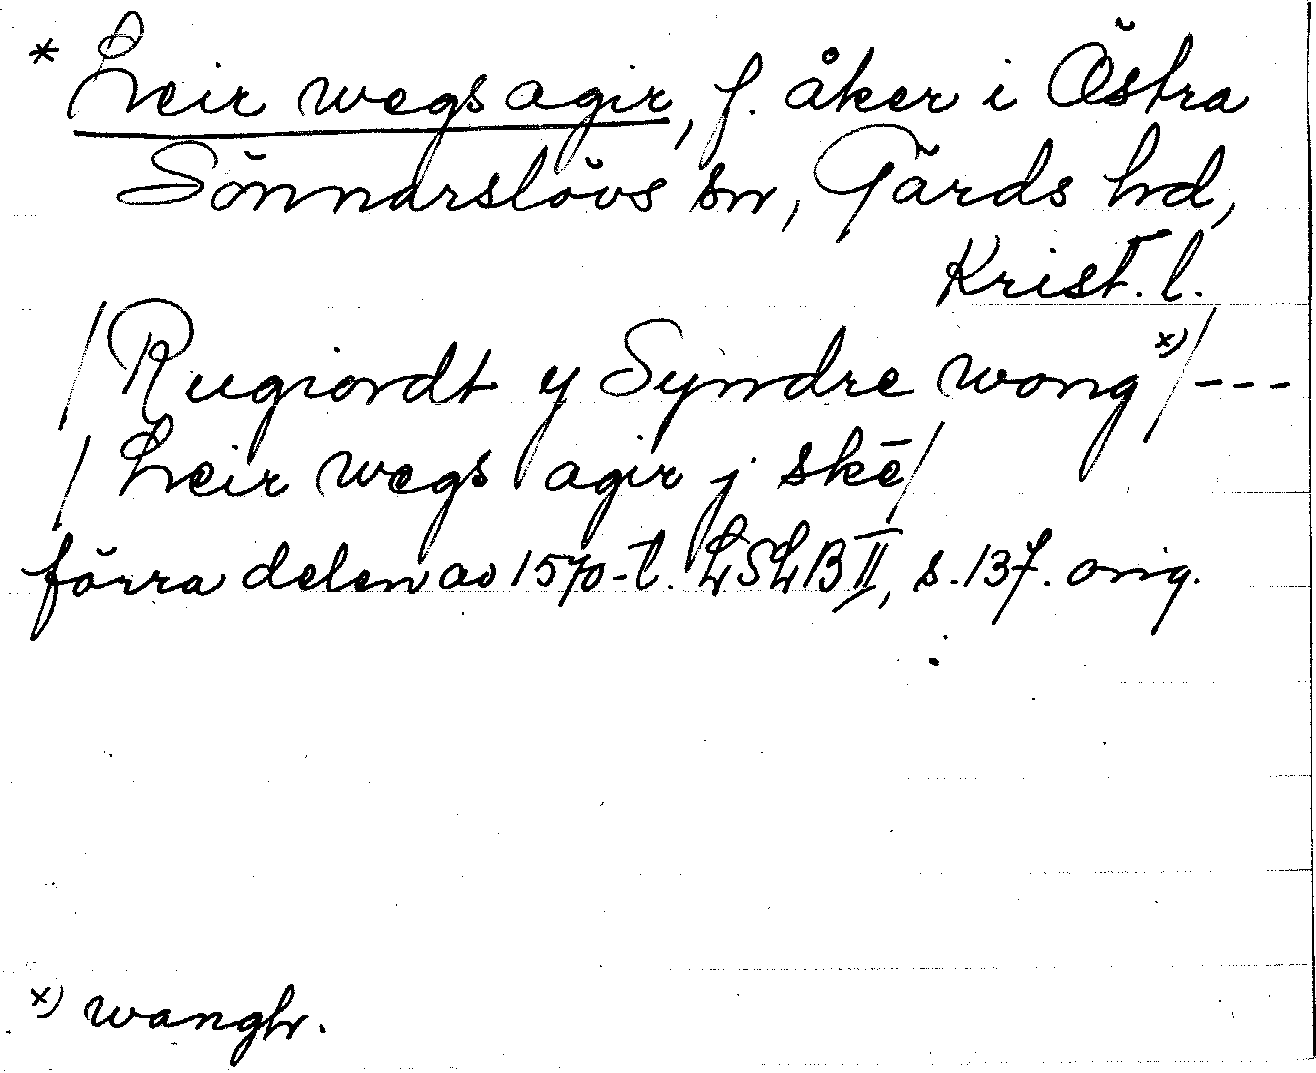 * Leir wegs agir, f. åker i Östra
Sönnarslövs sn, Gärds hd,
Krist. l.
/Rugiordt y Syndre wong x)/---
/Leir wegs agir j skē/
förra delen av 1570-t. LSLB II, s. 137. orig.
x) wangbr.